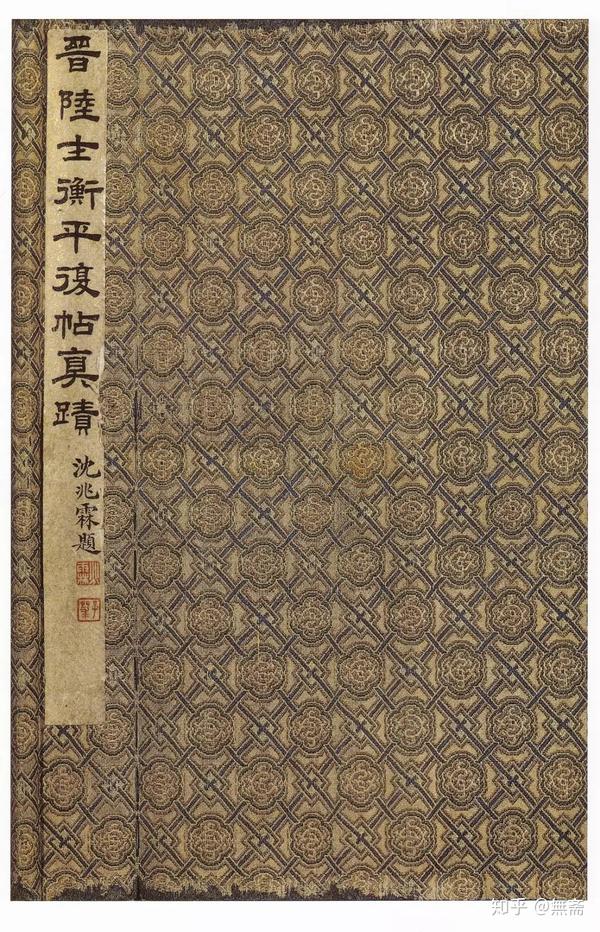 晉陸士衡平復帖真蹟
沈兆霖題
知乎 @無斋